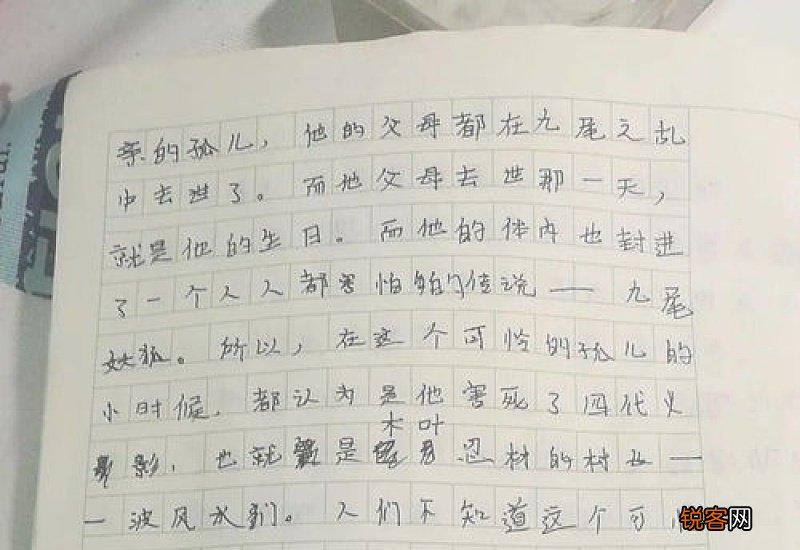 亲的孤儿，他的父母都在九尾之乱
中去世了。而他父母去世那一天，
就是他的生日。而他的体内也封进
了一个人人都害怕的传说——九尾
妖狐。所以，在这个可怜的孤儿的
小时候，都认为是他害死了四代火
影，也就是木叶忍村的村长—
—波风水门。人们不知道这个可
锐客网